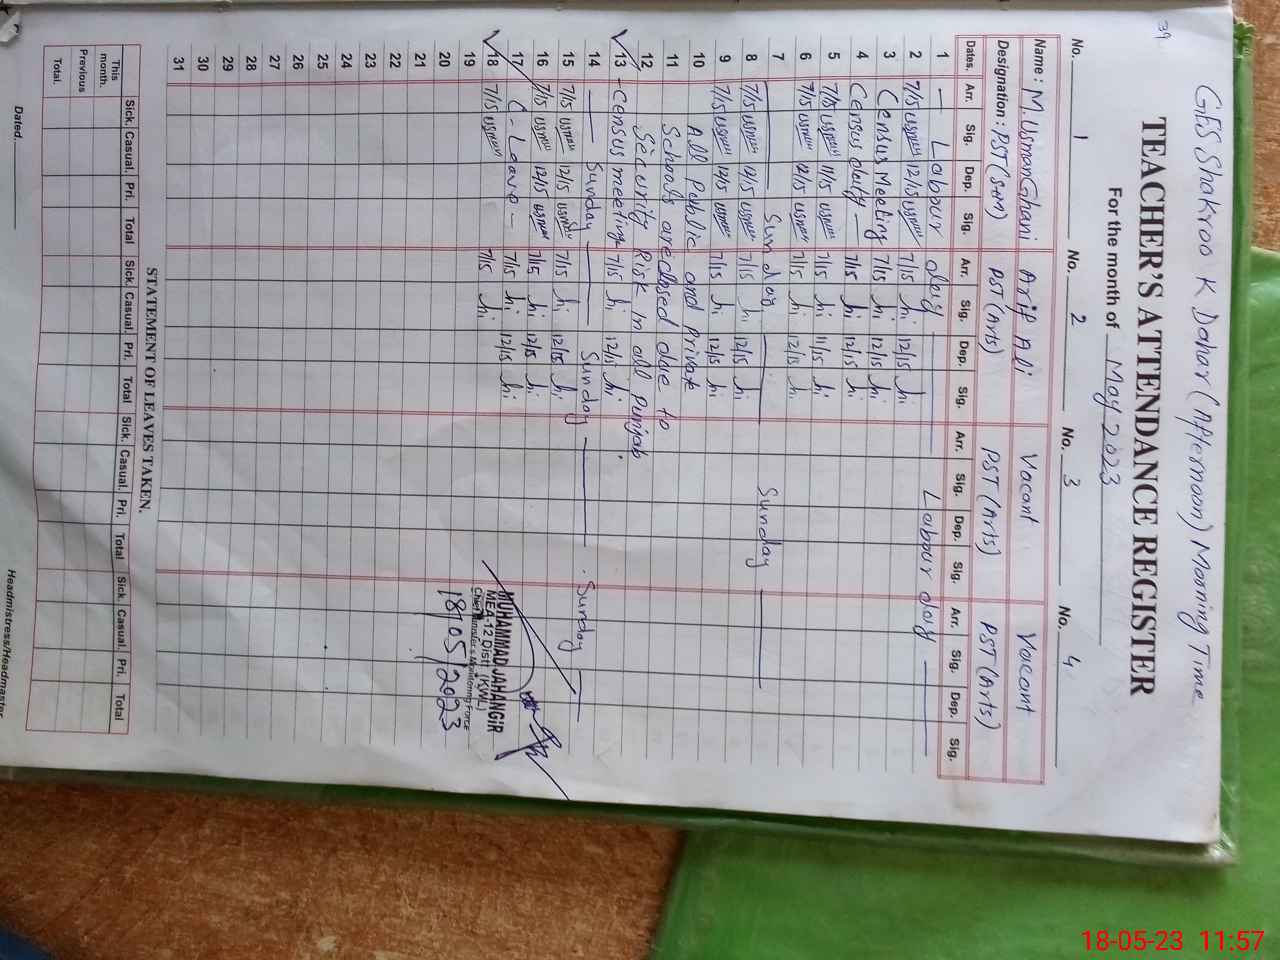 39
GES Shakroo K Dahar (Afternoon) Morning Time
TEACHER'S ATTENDANCE REGISTER
For the month of May 2023
No. 1 No. 2 No. 3 No. 4
Name: M.Usman Ghani Arif Ali Vacant Vacant
Designation: PST(S+M) PST (Arts) PST (Arts) PST (Arts)
Dates. Arr. Sig. Dep. Sig. Arr. Sig. Dep. Sig. Arr. Sig. Dep. Sig. Arr. Sig. Dep. Sig.
1 — Labour day — Labour day —
2 7/15 usman 12/15 usman 7/15 hi 12/15 hi
3 Census Meeting 7/15 hi 12/15 hi
4 Census duty — 7/15 hi 12/15 hi
5 7/15 usman 11/15 usman 7/15 hi 11/15 hi
6 7/15 usman 12/15 usman 7/15 hi 12/15 hi
7 — Sunday — Sunday —
8 7/15 usman 12/15 usman 7/15 hi 12/15 hi
9 7/15 usman 12/15 usman 7/15 hi 12/15 hi
10 All Public and Private
11 Schools are closed due to
12 Security Risk in all Punjab.
13 - Census meeting 7/15 hi 12/15 hi
14 — Sunday — Sunday — Sunday —
15 7/15 usman 12/15 usman 7/15 hi 12/15 hi
16 7/15 usman 12/15 usman 7/15 hi 12/15 hi
17 C - Leave - 7/15 hi 12/15 hi
18 7/15 usman 7/15 hi
19
20
21
22
23
24
25
26
27
28
29
30
31
MUHAMMAD JAHANGIR
MEA-12 Distt (KWL)
Chief Minister's Monitoring Force
18/05/2023
STATEMENT OF LEAVES TAKEN.
Sick. Casual. Pri. Total Sick. Casual. Pri. Total Sick. Casual. Pri. Total Sick. Casual. Pri. Total
This month.
Previous
Total.
Dated.
Headmistress/Headmaster
18-05-23 11:57